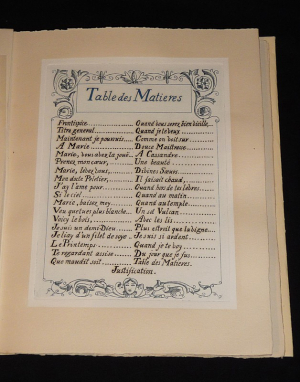 Table des Matieres
Frontispice
Titre general
Maintenant je poursuis
A Marie
Marie, vous
Prenez mon cœur,
Marie, levez vous,
Mon docte Peletier,
J'ay l'ame pour
Si le ciel
Marie, baisez moy
Vou qu'tues plus blanche
Voicy le bois,
Je suis un demi-Dieu
Je liay d'un filet de soye
Le Printemps
Te regardant assise
Que maudit soit
Quand vous serez bien vieille
Quand je te veux
Comme on voit sur
Douce Maistresse
A Cassandre
Une beauté
Divines Sœurs
Il faisoit chaud,
Quand hors de tes lèbres
Quand au matin
Quand au temple
Un sot Vulcan
Avec les lis
Plus estroit que la vigne
Je suis si ardent
Quand je te voy
Du jour que je fus
Table des Matieres
Justification.